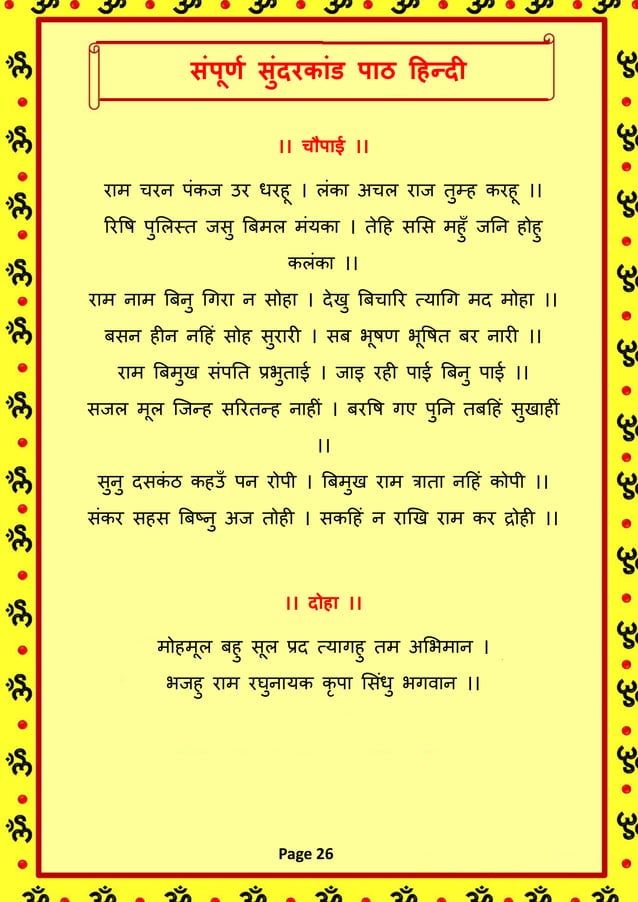 संपूर्ण सुंदरकांड पाठ हिन्दी
।। चौपाई ।।
राम चरन पंकज उर धरहू । लंका अचल राज तुम्ह करहू ।।
रिषि पुलिस्त जसु बिमल मंयका । तेहि ससि महुँ जनि होहु
कलंका ।।
राम नाम बिनु गिरा न सोहा । देखु बिचारि त्यागि मद मोहा ।।
बसन हीन नहिं सोह सुरारी । सब भूषण भूषित बर नारी ।।
राम बिमुख संपति प्रभुताई । जाइ रही पाई बिनु पाई ।।
सजल मूल जिन्ह सरितन्ह नाहीं । बरषि गए पुनि तबहिं सुखाहीं
।।
सुनु दसकंठ कहउँ पन रोपी । बिमुख राम त्राता नहिं कोपी ।।
संकर सहस बिष्नु अज तोही । सकहिं न राखि राम कर द्रोही ।।
।। दोहा ।।
मोहमूल बहु सूल प्रद त्यागहु तम अभिमान ।
भजहु राम रघुनायक कृपा सिंधु भगवान ।।
Page 26